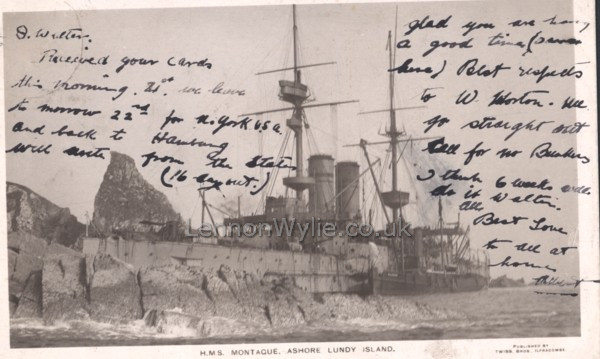 D. Walter.
Received your cards
this morning. 21st. we leave
to morrow 22nd for N. York USA
and back to Hamburg
will write from the States
(16 days out.)
glad you are having
a good time
Best respects
to W. Morton. We
go straight out
call for no Bunkers
I think 6 weeks
do it Walter.
All
Best Love
to all at
home
LennonWylie.co.uk
H.M.S. MONTAGUE. ASHORE LUNDY ISLAND.
PUBLISHED BY
TWISS BROS. ILFRACOMBE.